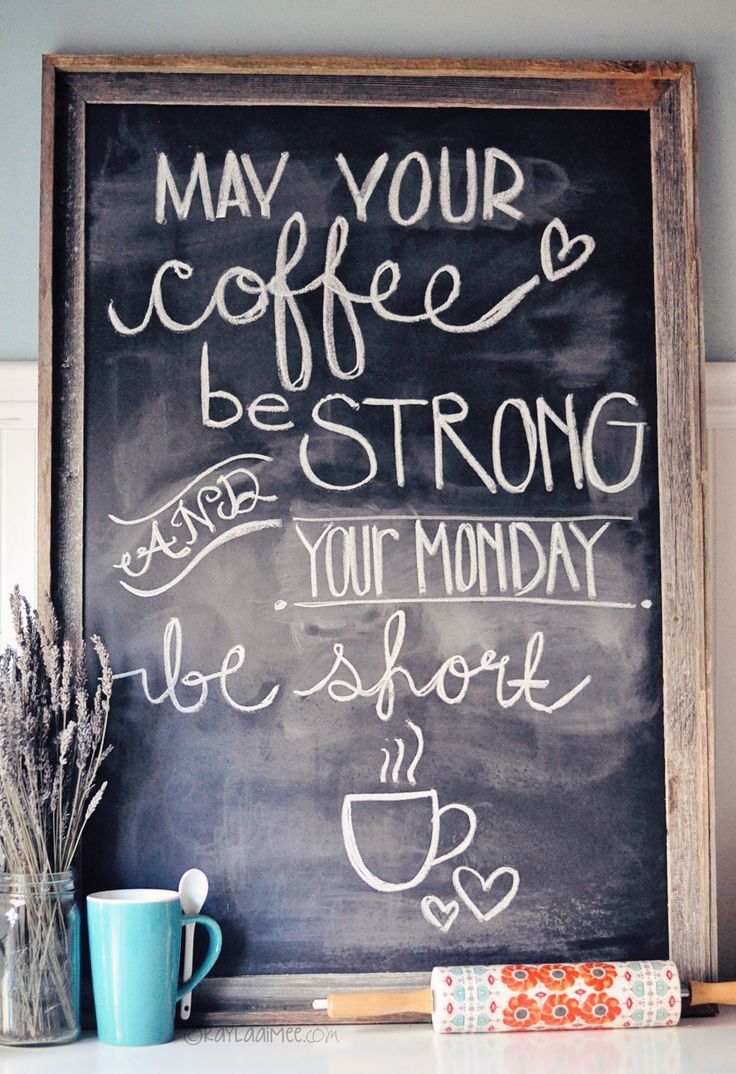 MAY YOUR
coffee
be STRONG
AND YOUR MONDAY
be short
©KAYLAAIMEE.COM